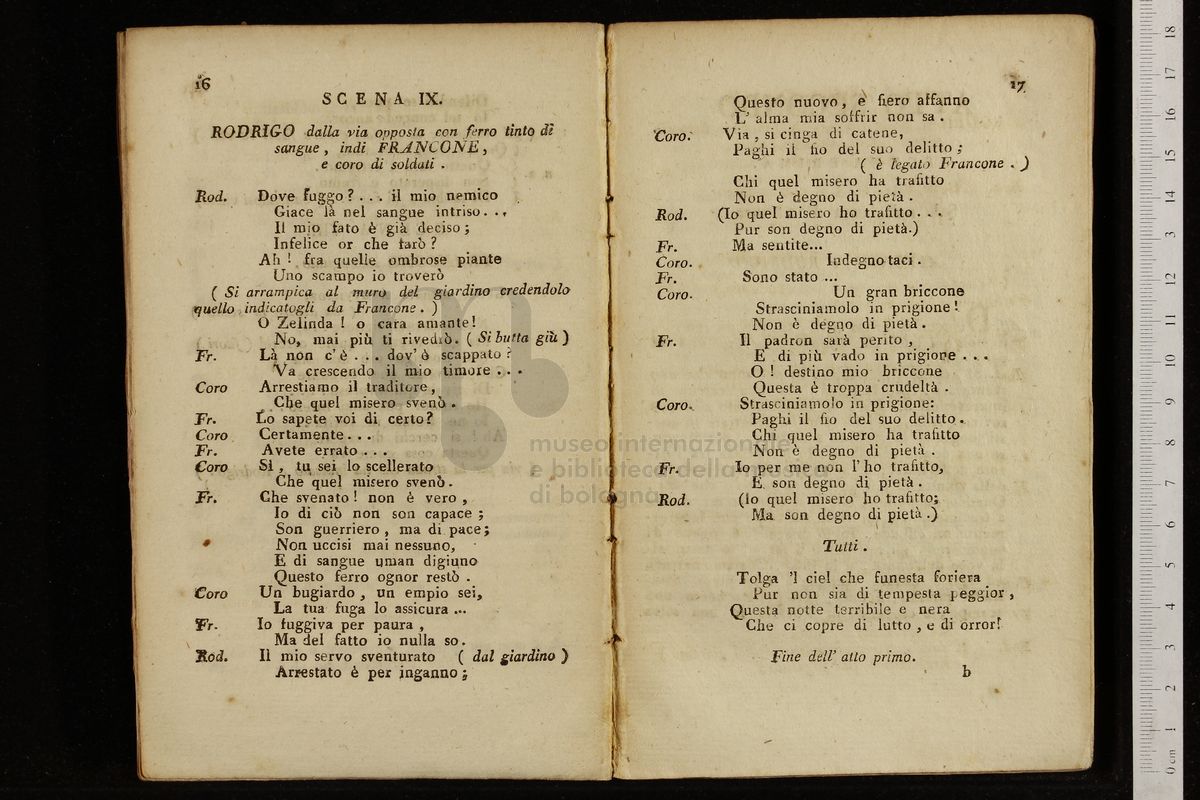 16
SCENA IX.
RODRIGO dalla via opposta con ferro tinto di
sangue, indi FRANCONE,
e coro di soldati.
Rod. Dove fuggo?... il mio nemico
Giace là nel sangue intriso...
Il mio fato è già deciso;
Infelice or che farò?
Ah! fra quelle ombrose piante
Uno scampo io troverò
( Si arrampica al muro del giardino credendolo
quello indicatogli da Francone. )
O Zelinda! o cara amante!
No, mai più ti rivedrò. ( Si butta giù )
Fr. Là non c'è... dov'è scappato?
Va crescendo il mio timore...
Coro Arrestiamo il traditore,
Che quel misero svenò.
Fr. Lo sapete voi di certo?
Coro Certamente...
Fr. Avete errato...
Coro Sì, tu sei lo scellerato
Che quel misero svenò.
Fr. Che svenato! non è vero,
Io di ciò non son capace;
Son guerriero, ma di pace;
Non uccisi mai nessuno,
E di sangue uman digiuno
Questo ferro ognor restò.
Coro Un bugiardo, un empio sei,
La tua fuga lo assicura...
Fr. Io fuggiva per paura,
Ma del fatto io nulla so.
Rod. Il mio servo sventurato ( dal giardino )
Arrestato è per inganno;
17
Questo nuovo, è fiero affanno
L'alma mia soffrir non sa.
Coro. Via, si cinga di catene,
Paghi il fio del suo delitto;
( è legato Francone. )
Chi quel misero ha trafitto
Non è degno di pietà.
Rod. (Io quel misero ho trafitto...
Pur son degno di pietà.)
Fr. Ma sentite...
Coro. Indegno taci.
Fr. Sono stato...
Coro. Un gran briccone
Strasciniamolo in prigione!
Non è degno di pietà.
Fr. Il padron sarà perito,
E di più vado in prigione...
O! destino mio briccone
Questa è troppa crudeltà.
Coro. Strasciniamolo in prigione:
Paghi il fio del suo delitto.
Chi quel misero ha trafitto
Non è degno di pietà.
Fr. Io per me non l'ho trafitto,
E son degno di pietà.
Rod. (Io quel misero ho trafitto;
Ma son degno di pietà.)
Tutti.
Tolga 'l ciel che funesta foriera
Pur non sia di tempesta peggior,
Questa notte terribile e nera
Che ci copre di lutto, e di orror!
Fine dell' atto primo.
b
museo internazionale
e biblioteca della musica
di bologna
0 cm 1 2 3 4 5 6 7 8 9 10 11 12 13 14 15 16 17 18